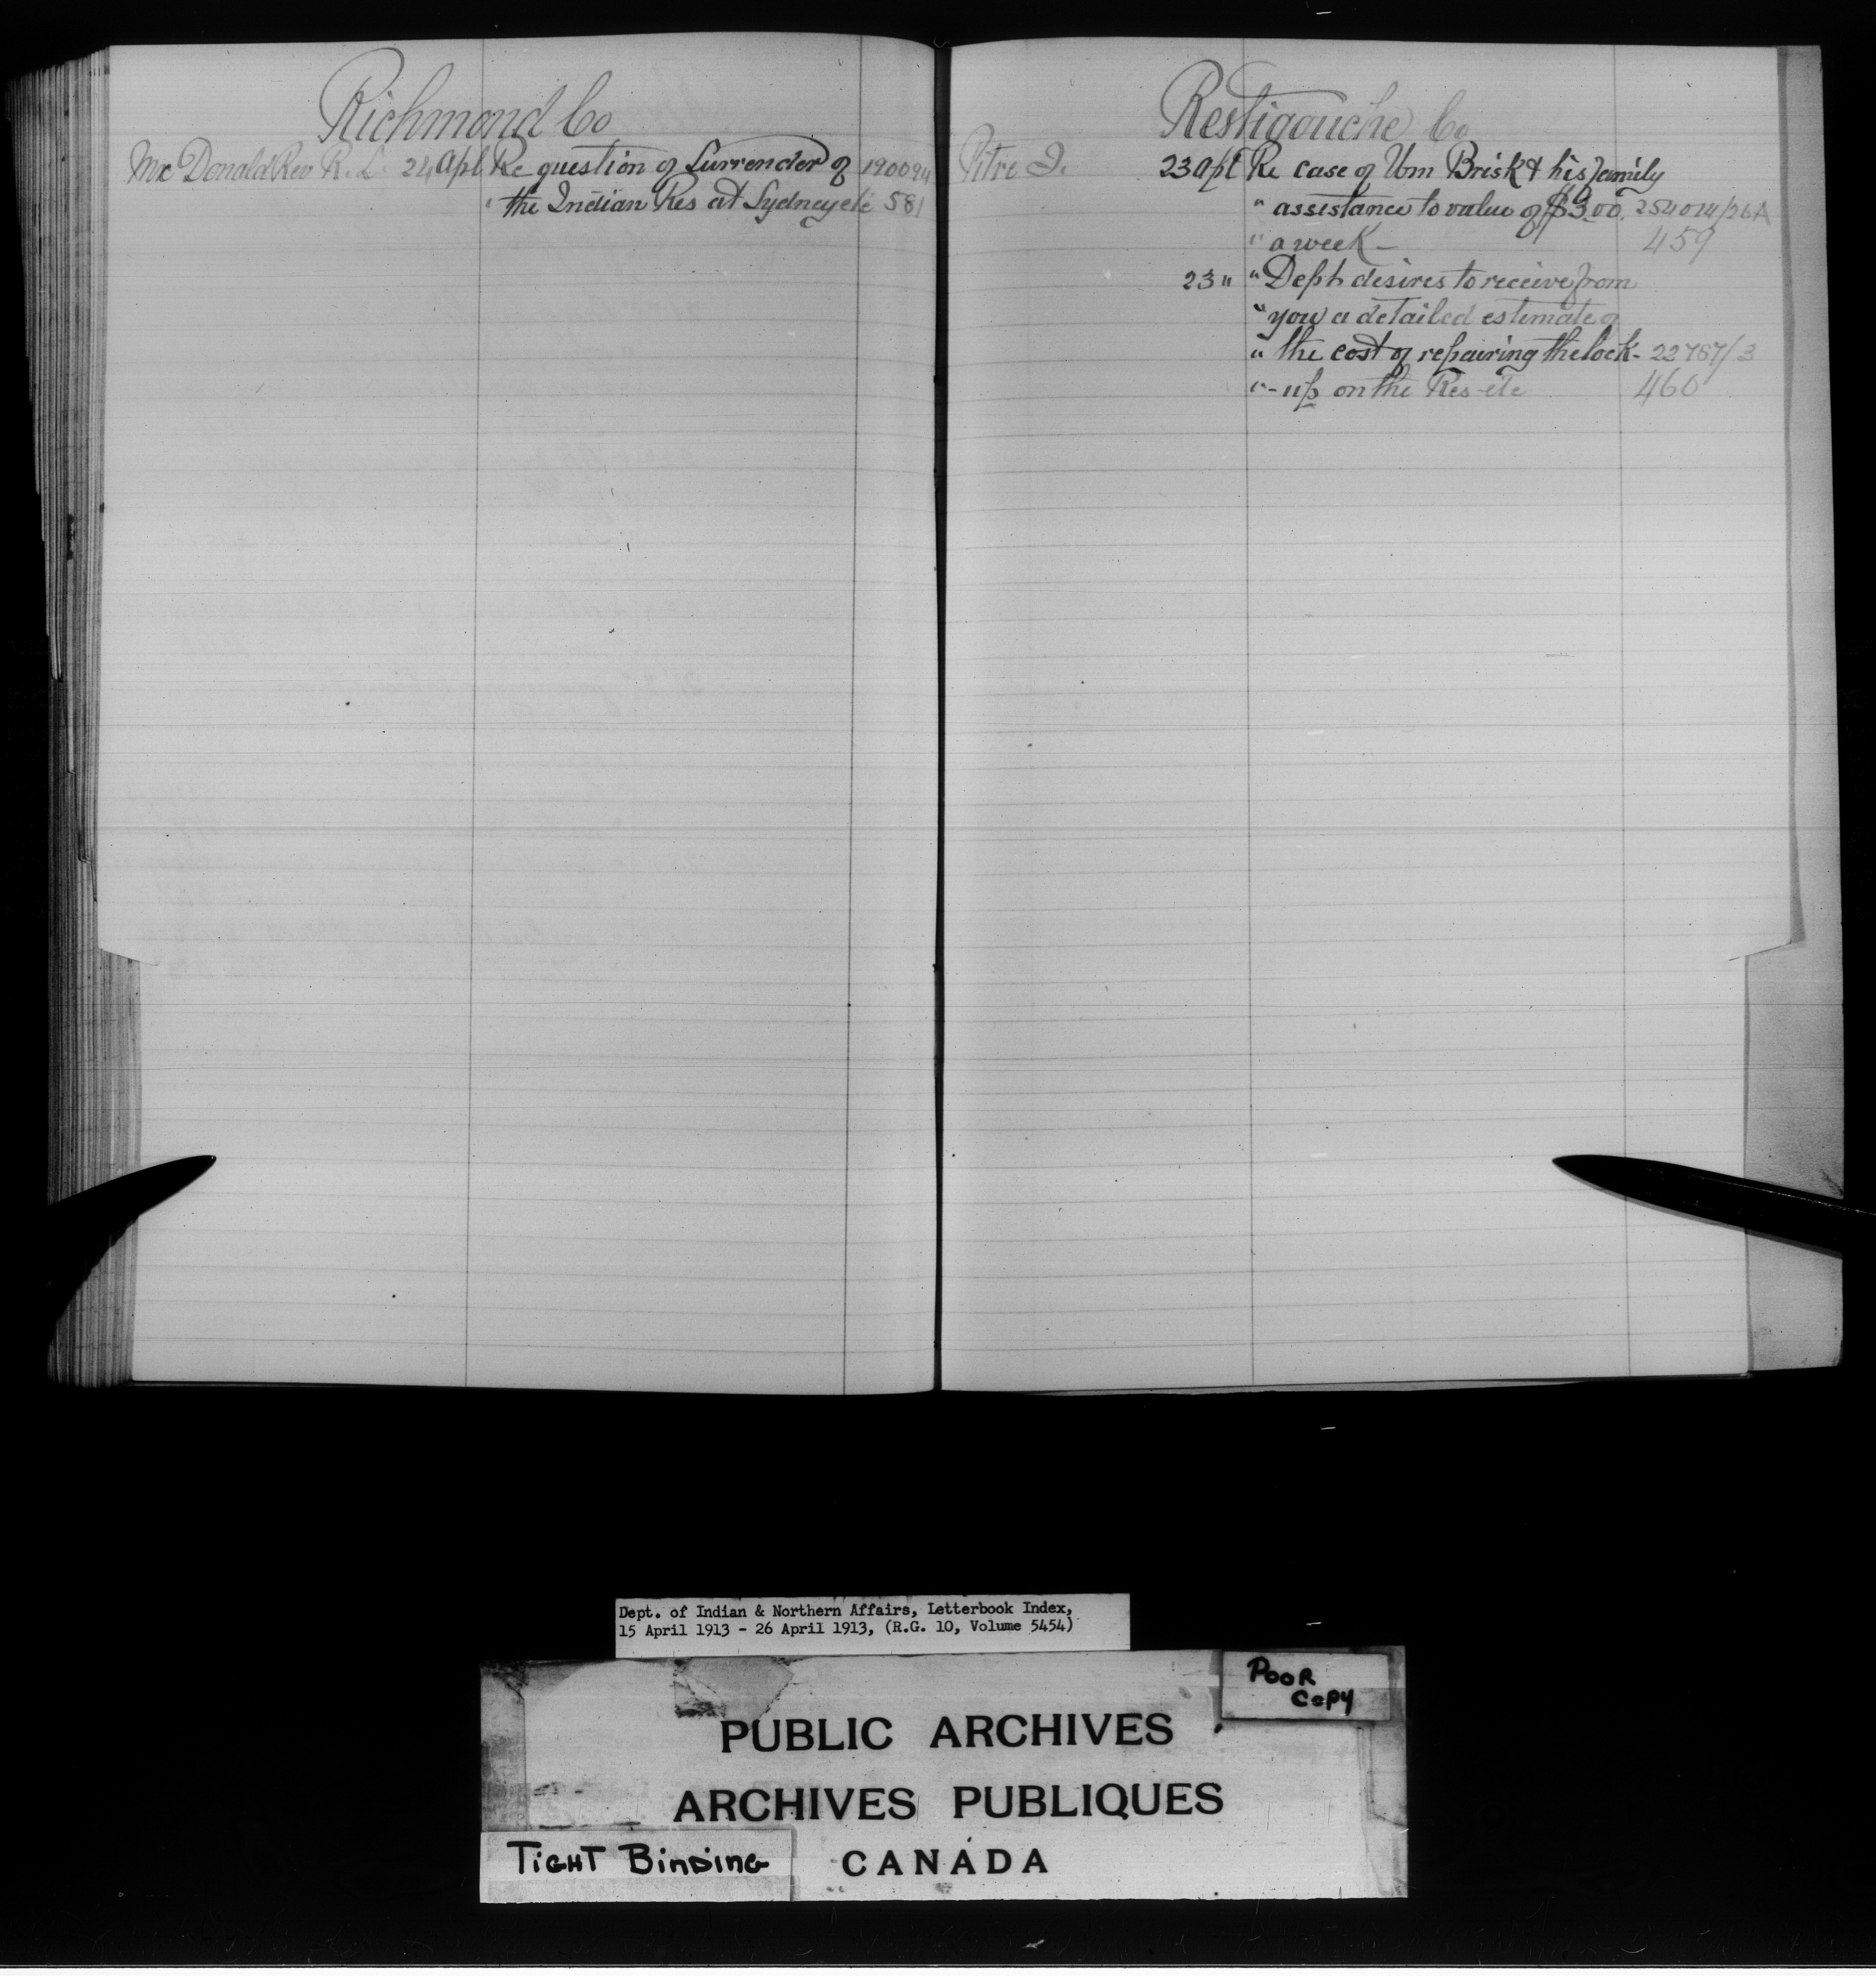 Richmond Co
McDonald Rev R. L. 24 Apl Re question of Surrender of 190094
" the Indian Res at Sydney etc 581
Restigouche Co
Pitre J. 23 Apl Re case of Wm Brisk & his family
" assistance to value of $3.00. 254014/26A
" a week - 459
23 " " Dept desires to receive from
" you a detailed estimate of
" the cost of repairing the lock- 22767/3
" -up on the Res-etc 460
Dept. of Indian & Northern Affairs, Letterbook Index,
15 April 1913 - 26 April 1913, (R.G. 10, Volume 5454)
POOR
COPY
PUBLIC ARCHIVES
ARCHIVES PUBLIQUES
TIGHT BINDING
CANADA